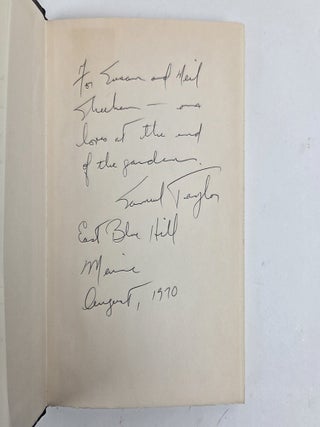 For Susan and Neil
Sheehan — our
loves at the end
of the garden.
Samuel Taylor
East Blue Hill
Maine
August, 1970